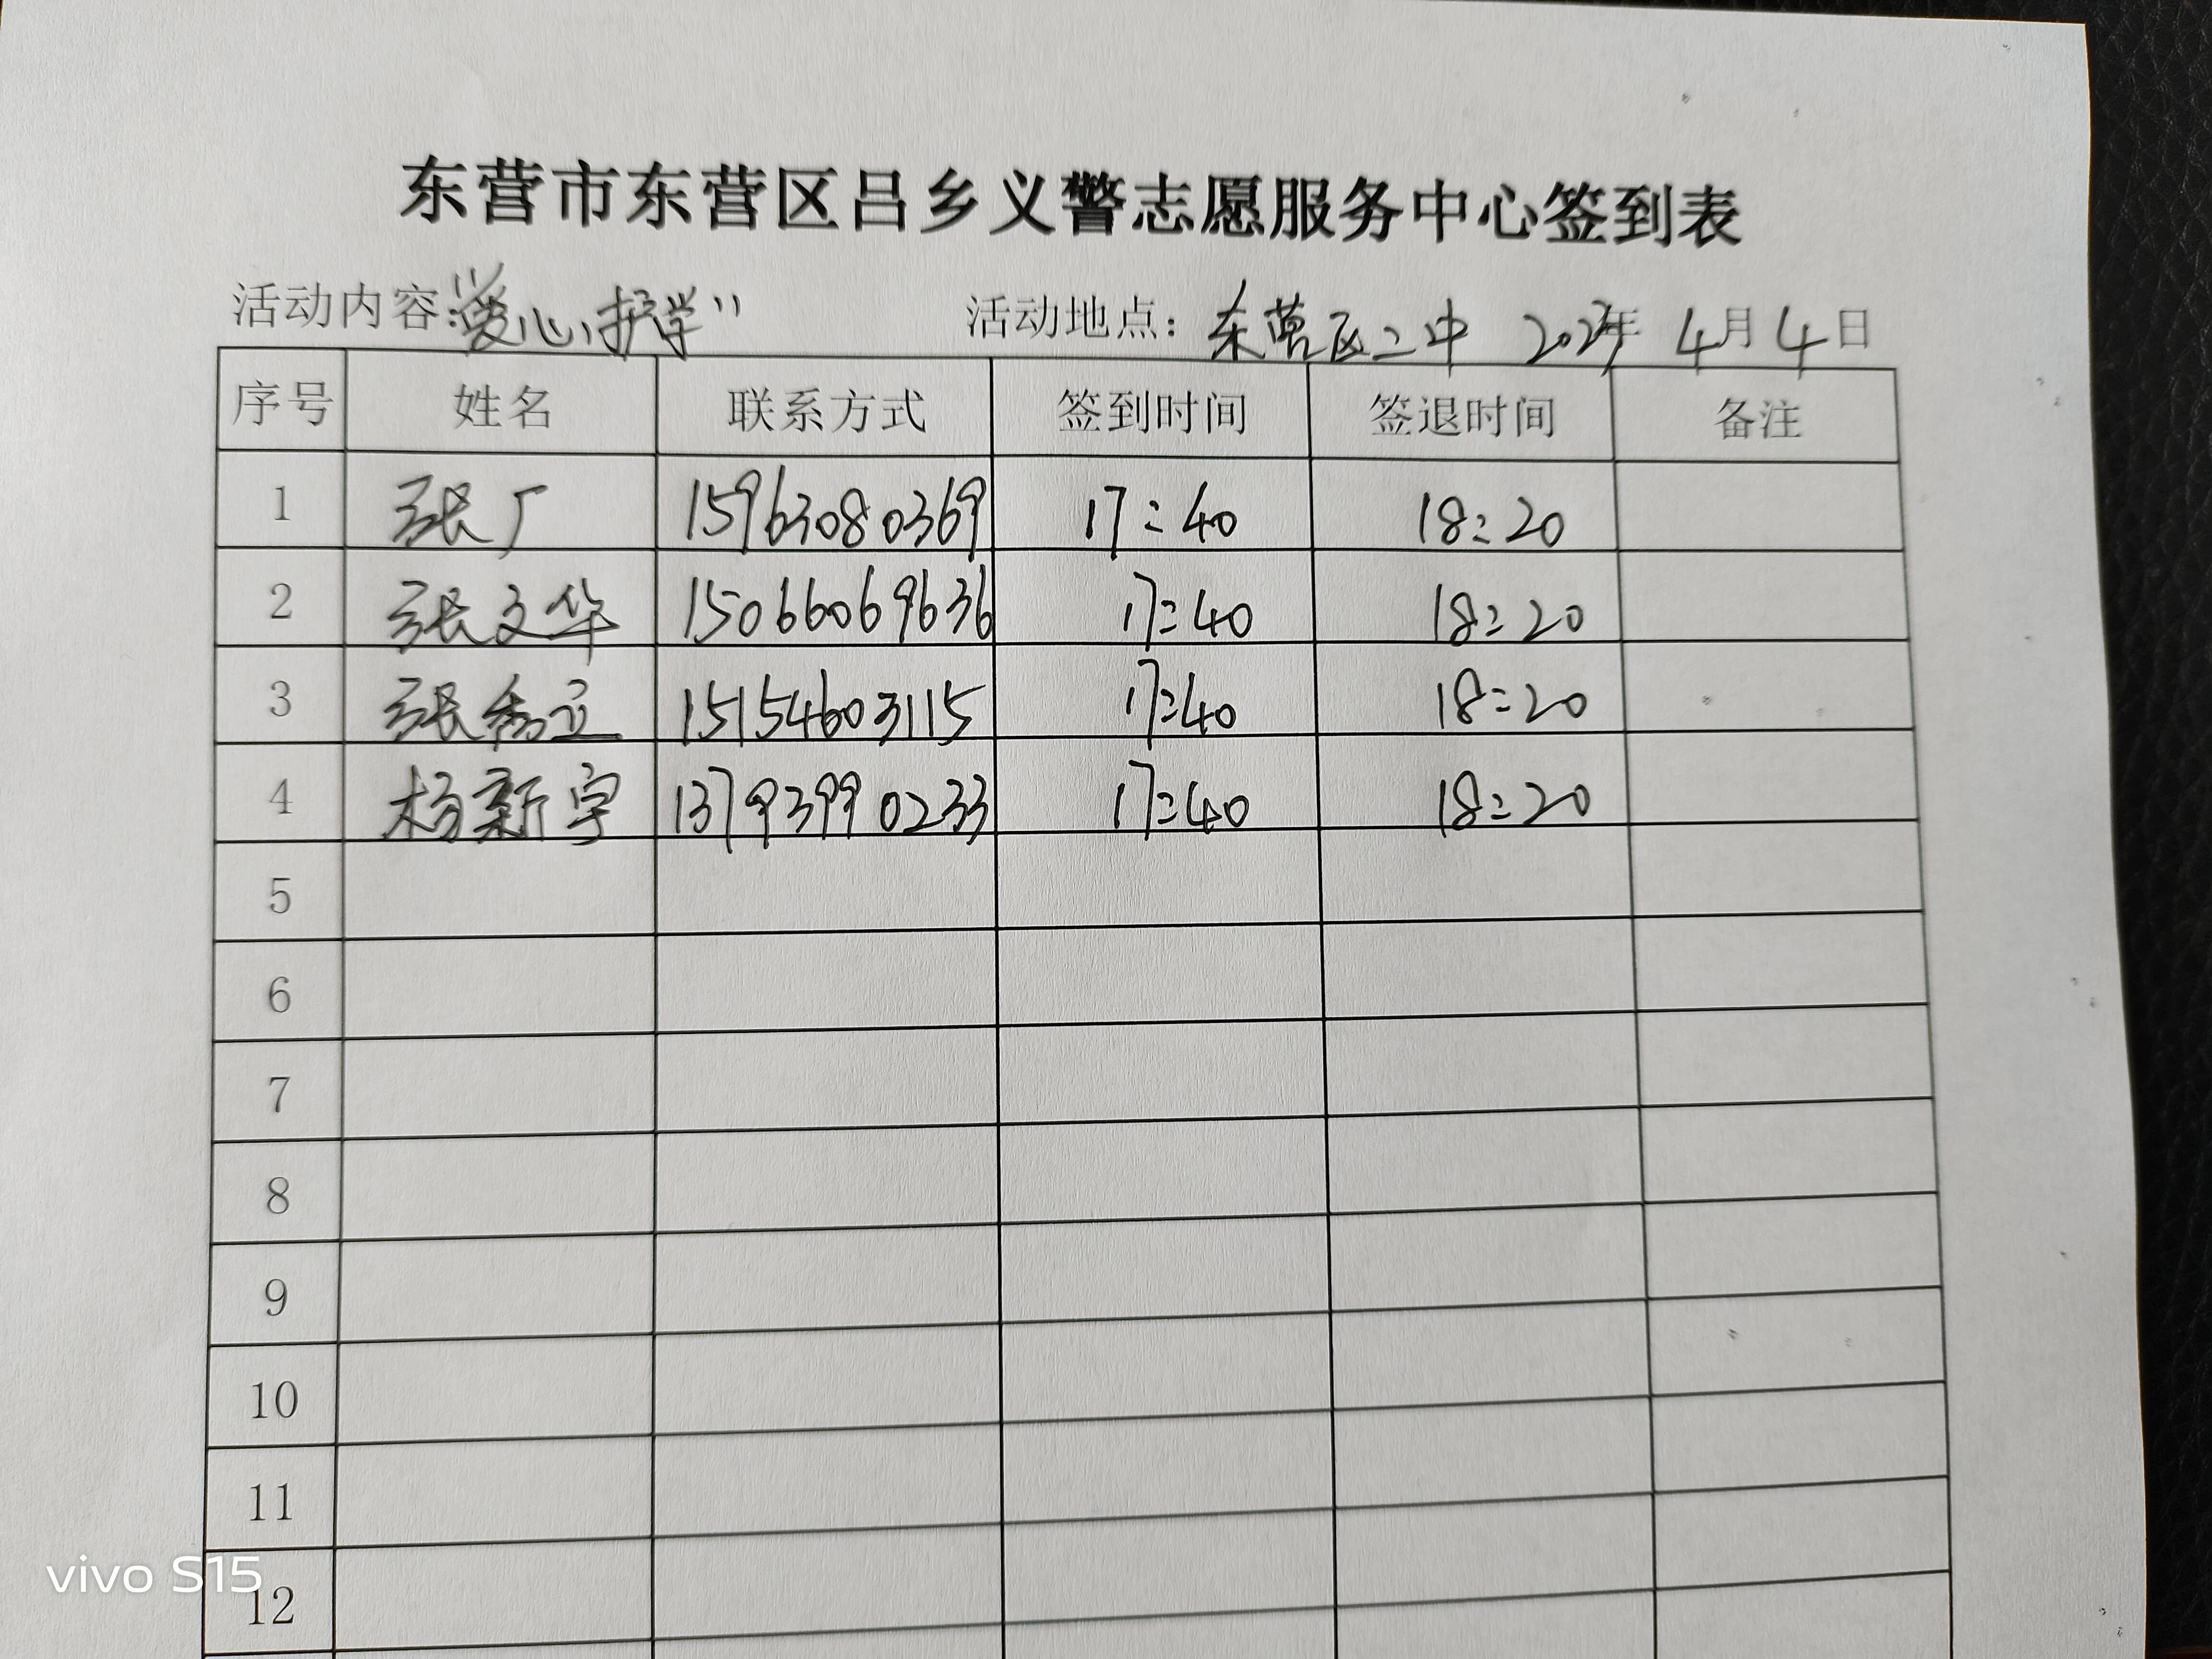 东营市东营区吕乡义警志愿服务中心签到表
活动内容:“爱心护学” 活动地点: 东营区二中 年 4月4日
序号 姓名 联系方式 签到时间 签退时间 备注
1 张广 15963080369 17:40 18:20
2 张文华 15066069636 17:40 18:20
3 张秀立 15154603115 17:40 18:20
4 杨新宇 13793990233 17:40 18:20
5
6
7
8
9
10
11
12
vivo S15